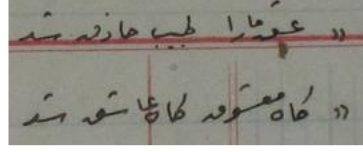 " عشق مارا طبیب حاذق شد
" گاه معشوق گاه عاشق شد